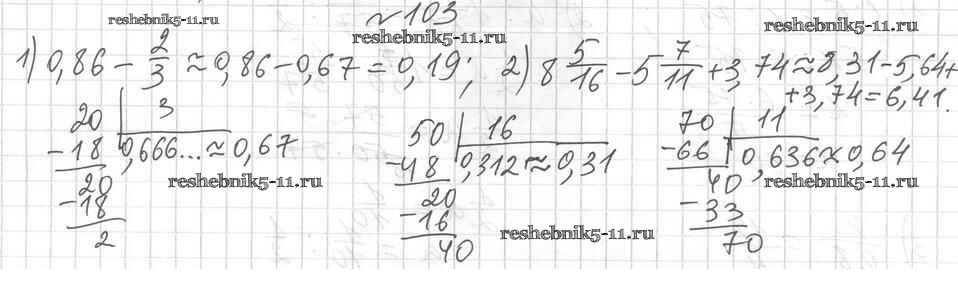 №103
reshebnik5-11.ru
reshebnik5-11.ru
1) 0,86 - 2/3 ≈ 0,86 - 0,67 = 0,19; 2) 8 5/16 - 5 7/11 + 3,74 ≈ 8,31 - 5,64 +
reshebnik5-11.ru
+ 3,74 = 6,41.
20 | 3
-18 | 0,666... ≈ 0,67
20
-18
2
reshebnik5-11.ru
50 | 16
-48 | 0,312 ≈ 0,31
20
-16
40
reshebnik5-11.ru
70 | 11
-66 | 0,636 ≈ 0,64
40
-33
70
reshebnik5-11.ru